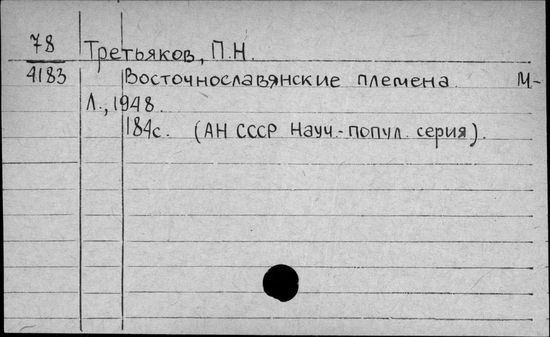 78 Третьяков, П.Н.
4183 Восточнославянские племена. М-
Л., 1948.
184с. (АН СССР Науч.-попул. серия).